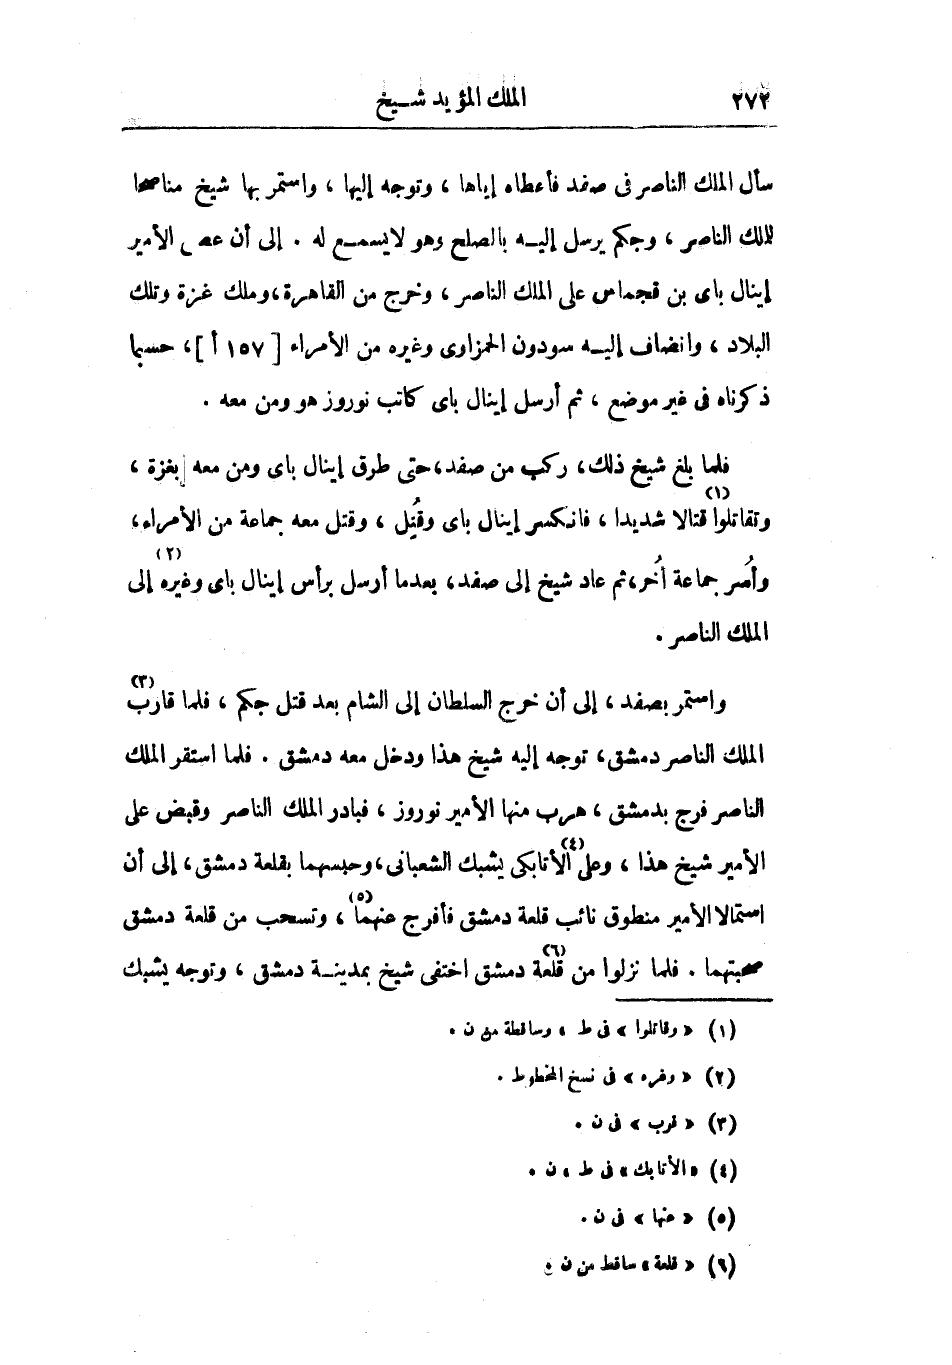 ٢٧٢ الملك المؤيد شـيخ
سأل الملك الناصر فى صفد فأعطاه إياها ، وتوجه إليها ، واستمر بها شيخ مناصحا
للملك الناصر ، وجكم يرسل إليـه بالصلح وهو لايسمـع له . إلى أن عصى الأمير
إينال باى بن قجماس على الملك الناصر ، وخرج من القاهرة،وملك غزة وتلك
البلاد ، وانضاف إليـه سودون الحمزاوى وغيره من الأمراء [ ١٥٧ أ ]، حسبما
ذكرناه فى غير موضع ، ثم أرسل إينال باى كاتب نوروز هو ومن معه .
فلما بلغ شيخ ذلك، ركب من صفد،حتى طرق إينال باى ومن معه بغزة ،
وتقاتلوا(١) قتالا شديدا ، فانكسر إينال باى وقُتِل ، وقتل معه جماعة من الأمراء،
وأُسر جماعة أُخر،ثم عاد شيخ إلى صفد، بعدما أرسل برأس إينال باى وغيره(٢) إلى
الملك الناصر .
واستمر بصفد ، إلى أن خرج السلطان إلى الشام بعد قتل جكم ، فلما قارب(٣)
الملك الناصر دمشق، توجه إليه شيخ هذا ودخل معه دمشق . فلما استقر الملك
الناصر فرج بدمشق ، هرب منها الأمير نوروز ، فبادر الملك الناصر وقبض على
الأمير شيخ هذا ، وعلى الأتابكى(٤) يشبك الشعبانى،وحبسهما بقلعة دمشق، إلى أن
استمالا الأمير منطوق نائب قلعة دمشق فأفرج عنهما(٥) ، وتسحب من قلعة دمشق
صحبتهما . فلما نزلوا من قلعة(٦) دمشق اختفى شيخ بمدينـة دمشق ، وتوجه يشبك
(١) « وقاتلوا » فى ط ، وساقطة من ن .
(٢) « وغره » فى نسخ المخطوط .
(٣) « قرب » فى ن .
(٤) « الأتابك » فى ط ، ن .
(٥) « عنها » فى ن .
(٦) « قلعة » ساقط من ن .